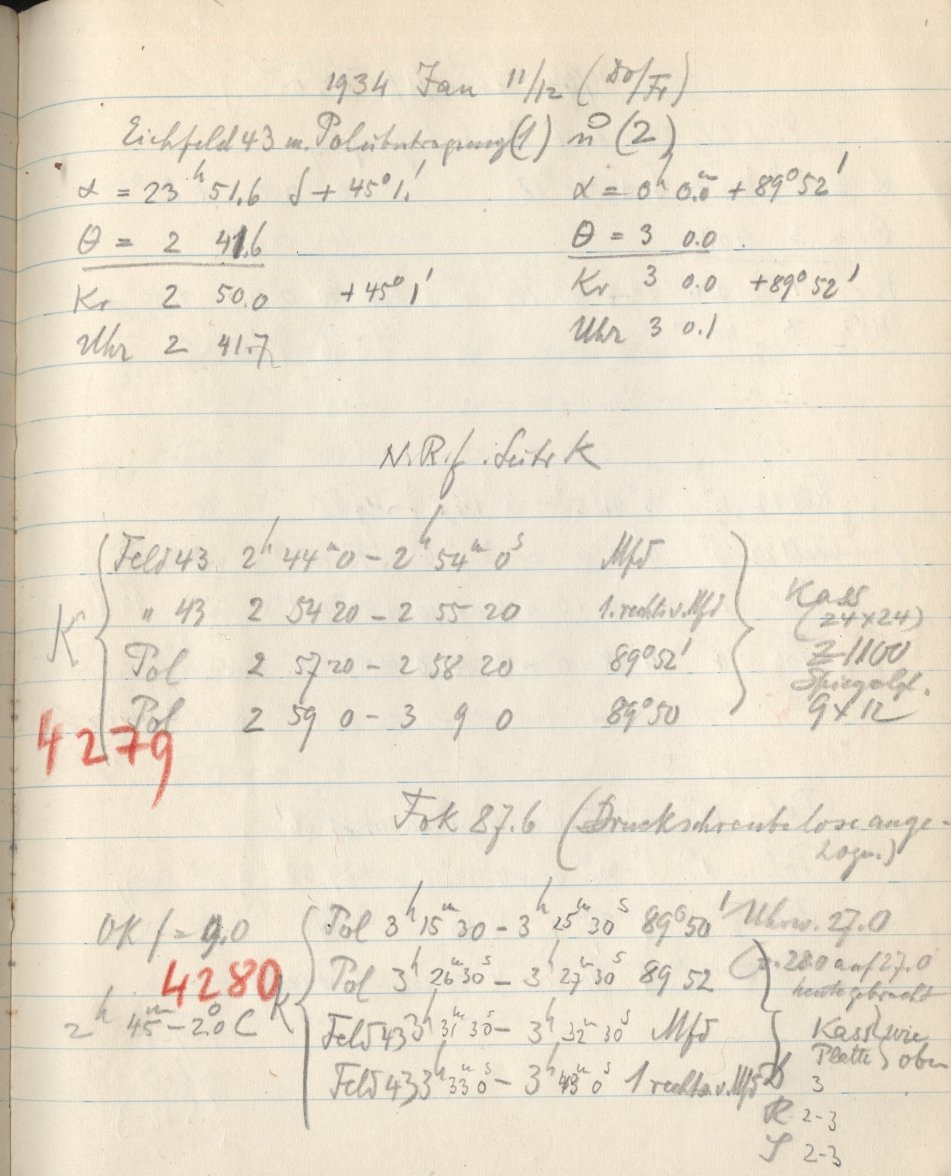 1934 Jan 11/12 (Do/Fr)
Eichfeld 43 m. Polübertragung (1) n (2)
α = 23ʰ 51.6 δ + 45° 1.' α = 0ʰ 0.0ᵐ + 89° 52'
θ = 2 41.6 θ = 3 0.0
Kr 2 50.0 + 45° 1' Kr 3 0.0 + 89° 52'
Uhr 2 41.7 Uhr 3 0.1
N.R.f. K
K
Feld 43 2ʰ 44ᵐ 0 – 2ʰ 54ᵐ 0ˢ Mfd
" 43 2 54 20 – 2 55 20 1. rechts v. Mfd
Pol 2 57 20 – 2 58 20 89° 52'
Pol 2 59 0 – 3 9 0 89° 50
Kass
(24×24)
Z 1100
Spiegelgl.
9×12
4279
Fok 87.6 (Druckschraube lose ange-
zogen.)
OK f = 0,0
4280
2ʰ 45ᵐ – 2.0° C
K
Pol 3ʰ 15ᵐ 30 – 3ʰ 25ᵐ 30ˢ 89° 50' Uhrw. 27.0
Pol 3ʰ 26ᵐ 30ˢ – 3ʰ 27ᵐ 30ˢ 89 52 (v. 28.0 auf 27.0
heute gebracht
Feld 43 3ʰ 31ᵐ 30ˢ – 3ʰ 32ᵐ 30ˢ Mfd
Feld 43 3ʰ 33ᵐ 0ˢ – 3ʰ 43ᵐ 0ˢ 1 rechts v. Mfd
Kass } wie
Platte } oben
D 3
R 2-3
S 2-3